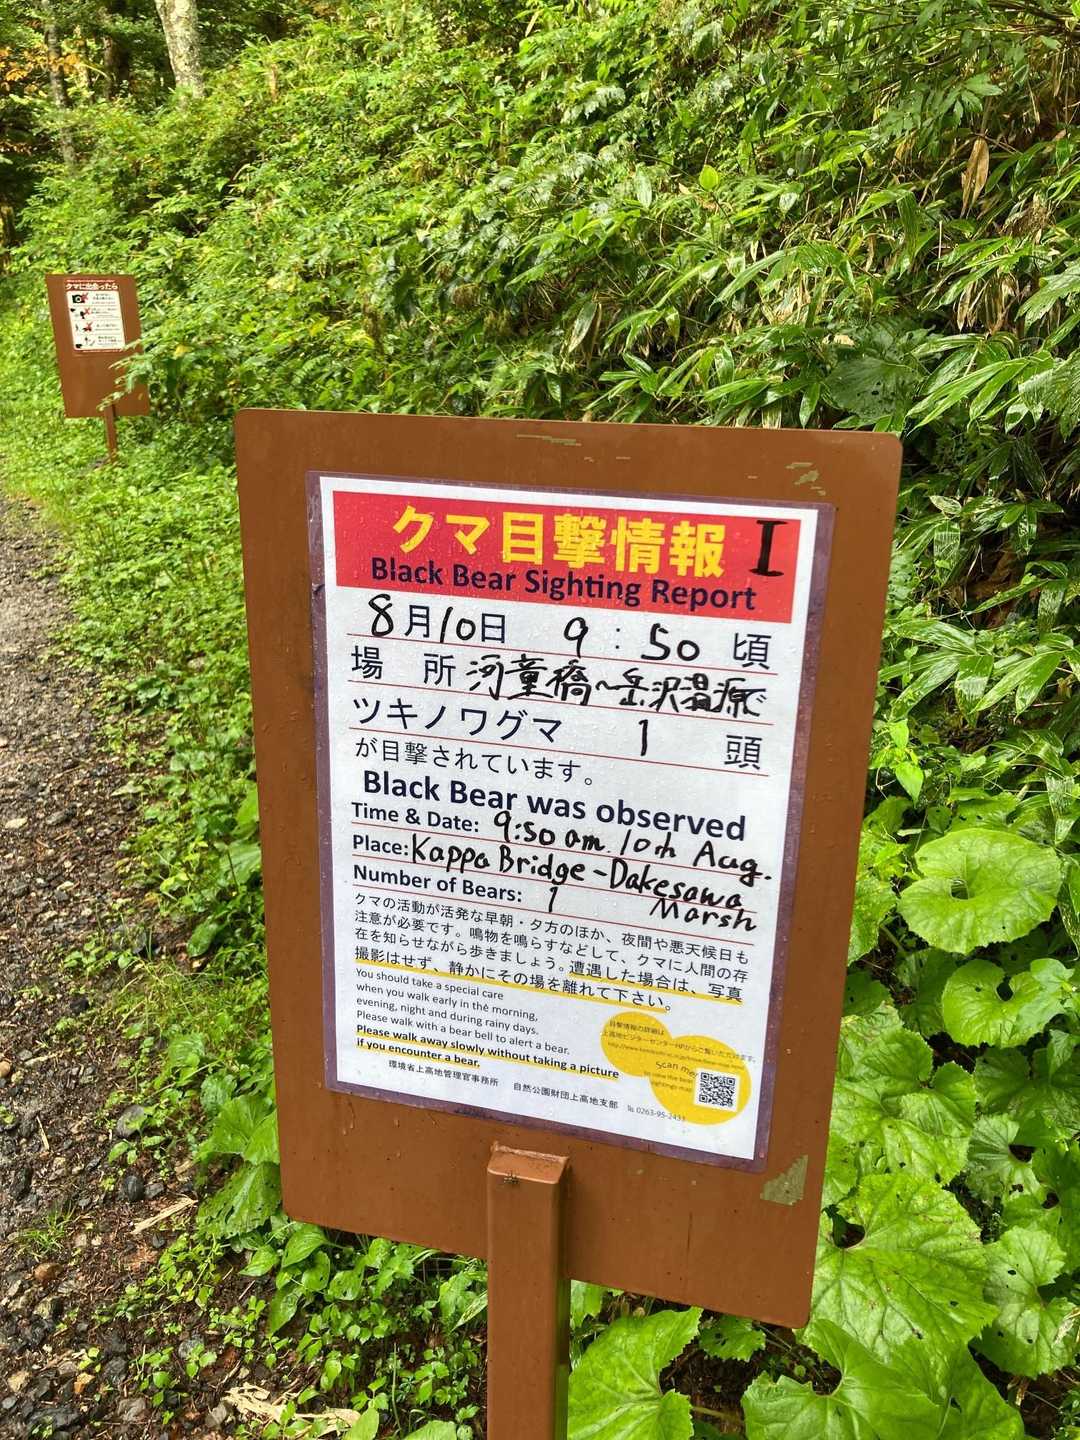 クマに出会ったら
クマ目撃情報 I
Black Bear Sighting Report
8月10日 9:50頃
場 所 河童橋〜岳沢湿原で
ツキノワグマ 1 頭
が目撃されています。
Black Bear was observed
Time & Date: 9:50 am. 10th Aug.
Place: Kappa Bridge - Dakesawa
Marsh
Number of Bears: 1
クマの活動が活発な早朝・夕方のほか、夜間や悪天候日も
注意が必要です。鳴物を鳴らすなどして、クマに人間の存
在を知らせながら歩きましょう。遭遇した場合は、写真
撮影はせず、静かにその場を離れて下さい。
You should take a special care
when you walk early in the morning,
evening, night and during rainy days.
Please walk with a bear bell to alert a bear.
Please walk away slowly without taking a picture
if you encounter a bear.
目撃情報の詳細は
上高地ビジターセンターHPからご覧いただけます。
Scan me!
環境省上高地管理官事務所 自然公園財団上高地支部 ℡ 0263-95-2433